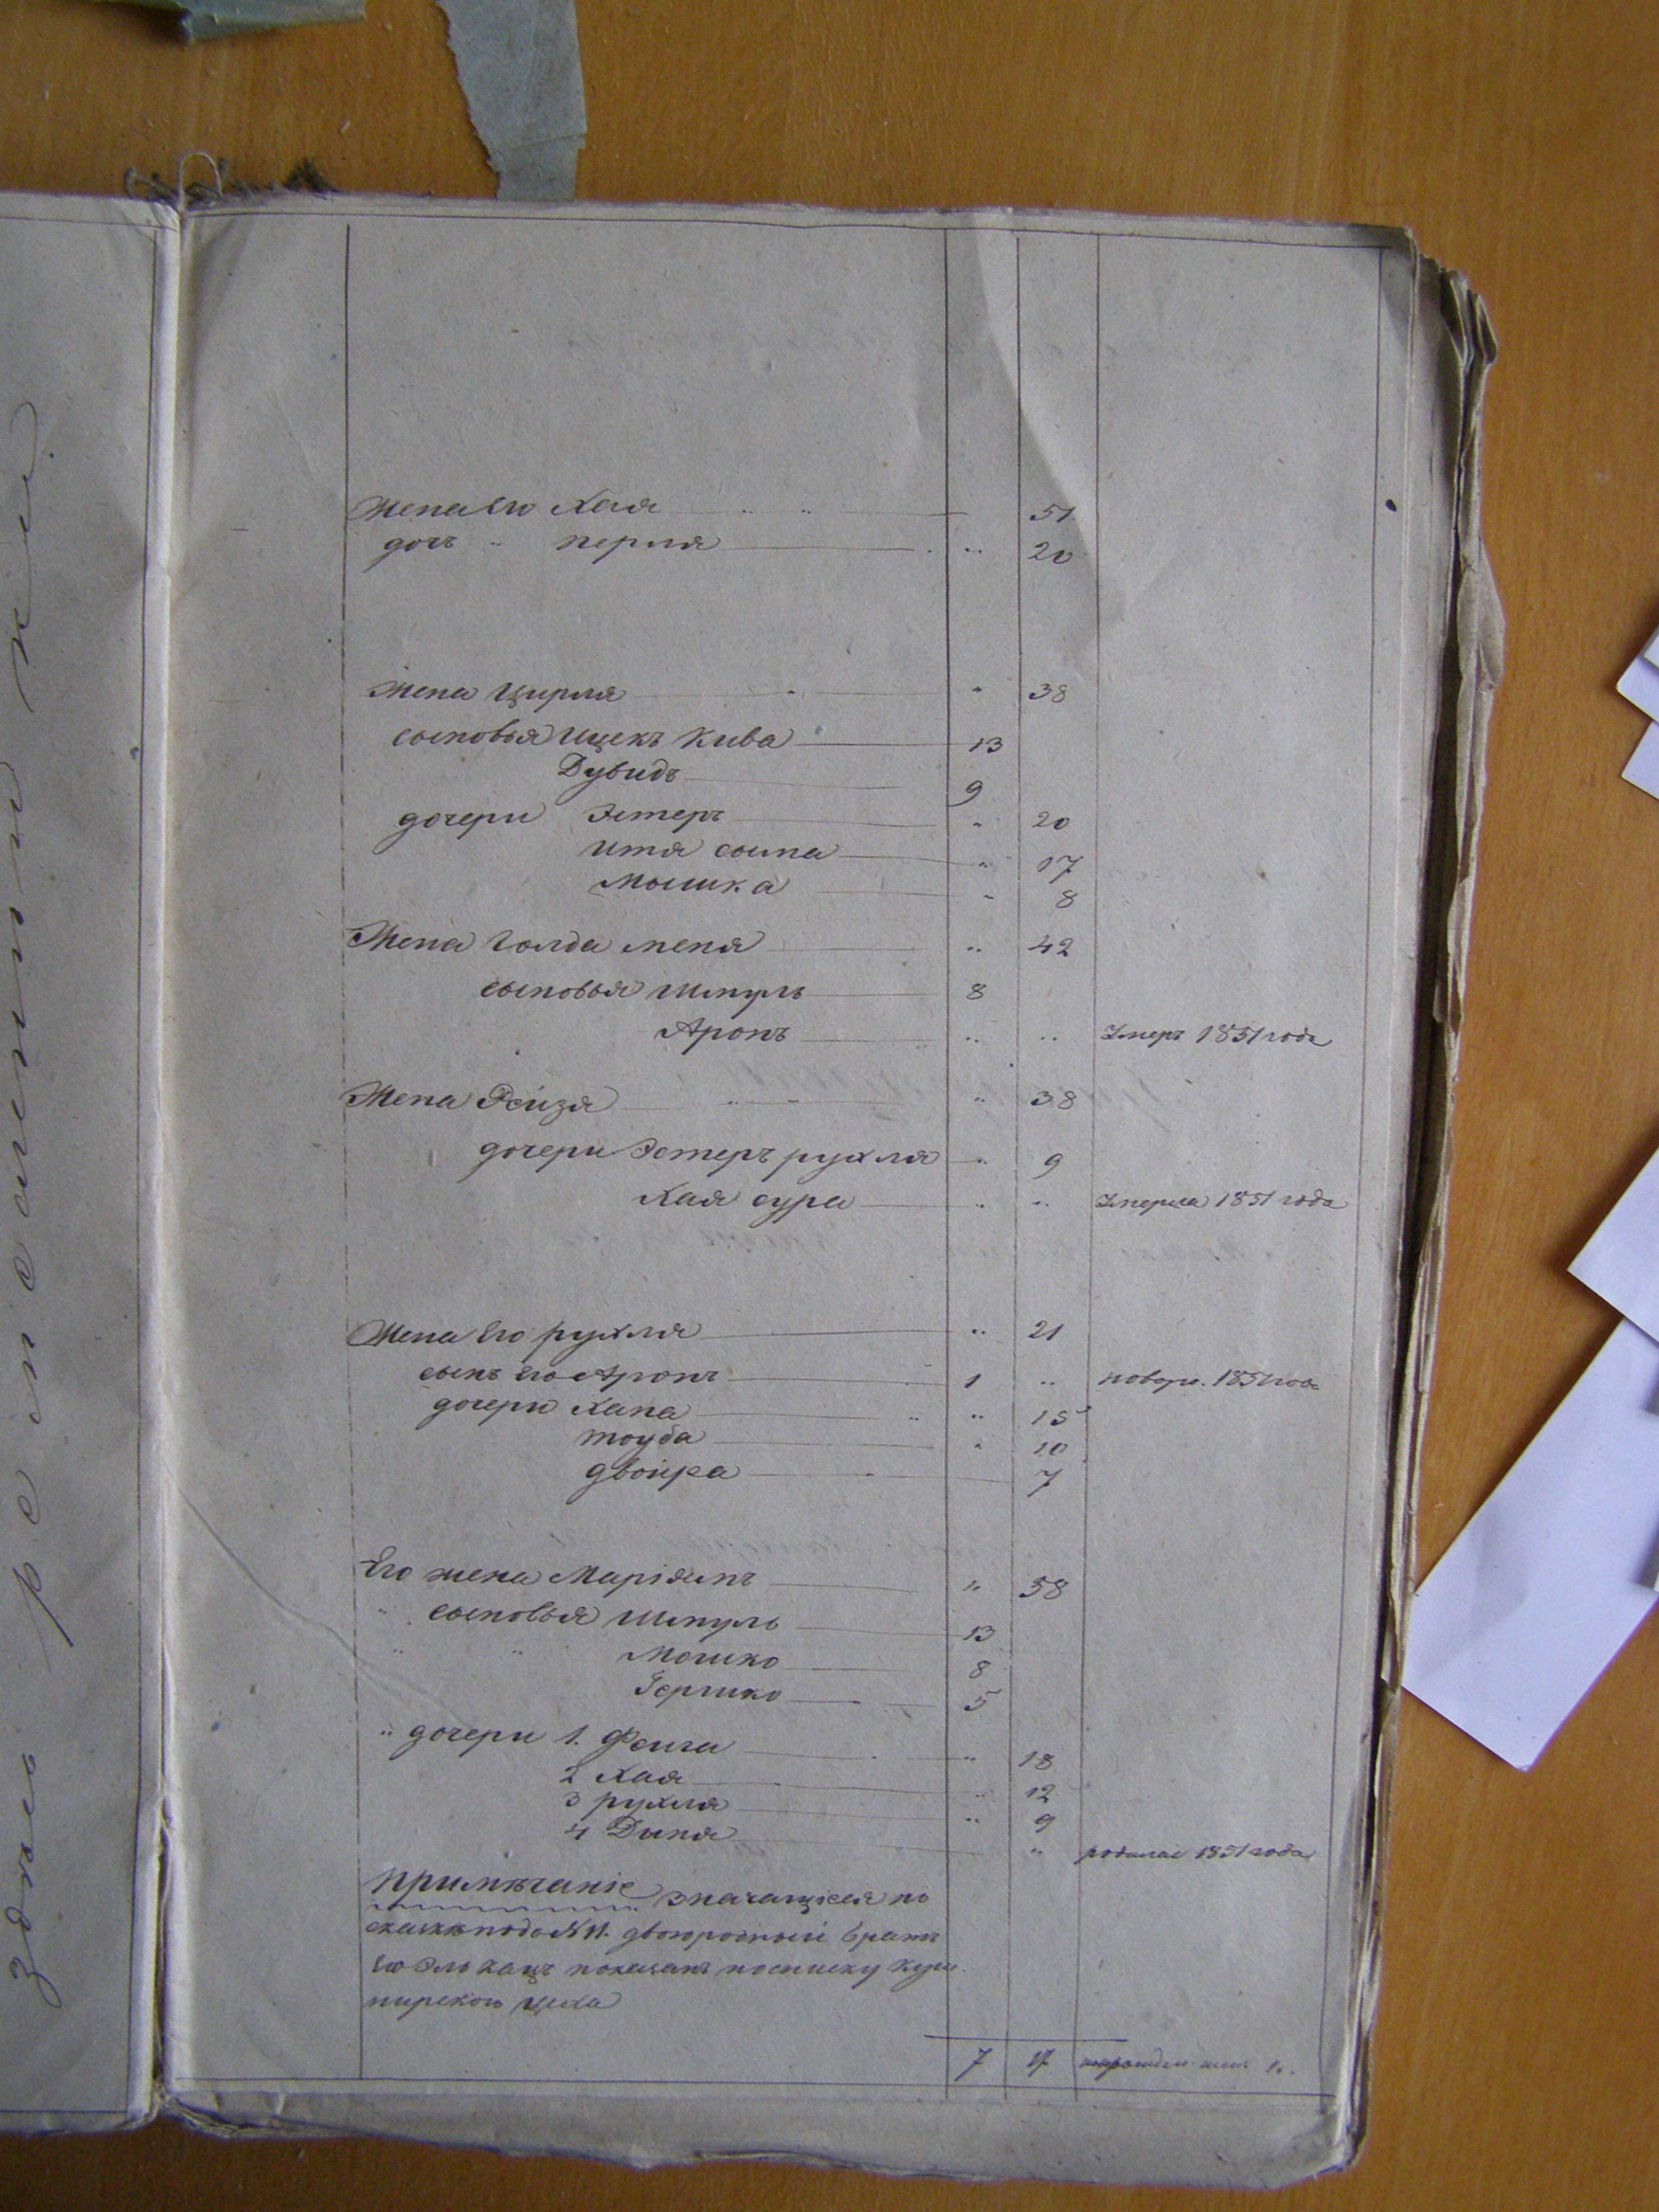 Жена его Хая 51
дочь " перля " 20
Жена Цирля " 38
сыновья Ицекъ Кива 13
Дувидъ 9
дочери Эстеръ " 20
Итя сыма " 17
Мышка " 8
Жена Голда меня " 42
сыновья Шмуль 8
Аронъ " " Умеръ 1851 года
Жена Рейзя " 38
дочери Эстеръ рухля " 9
Хая сура " " Умерла 1851 года
Жена его рухля " 21
сынъ его Аронъ 1 " новор. 1851 года
дочери Хана " 15
тоуба " 10
двойра 7
Его жена Маріямъ " 38
" сыновья Шмуль 13
" " Мошко 8
Гершко 5
" дочери 1. Фейга " 18
2 Хая " 12
3 рухля " 9
4 Дыня " родилас 1851 года
Примѣчаніе значащійся по
сказкѣ подъ № 11. двоюродный братъ
его Эль кацъ показанъ по списку
цеха
7 17